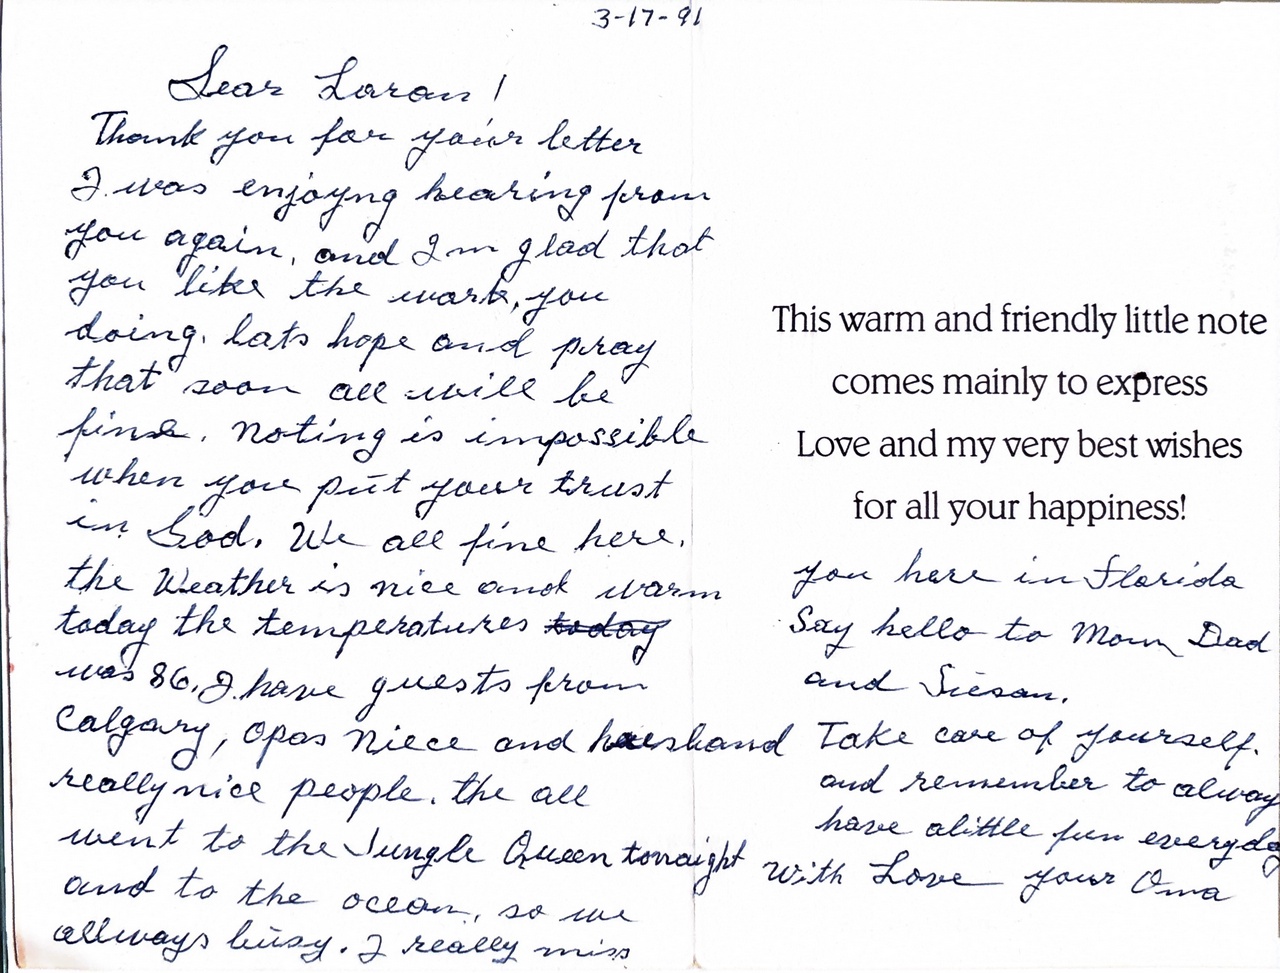 3-17-91
Dear Loran!
Thank you for your letter
I was enjoyng hearing from
you again, and I'm glad that
you like the work, you
doing. lats hope and pray
that soon all will be
fine. Noting is impossible
when you put your trust
in God. We all fine here.
the Weather is nice and warm
today the temperatures today
was 86. I have guests from
Calgary, Opas Niece and huesband
really nice people. the all
went to the Jungle Queen tonaight
and to the ocean, so we
allways busy. I really miss
This warm and friendly little note
comes mainly to express
Love and my very best wishes
for all your happiness!
you here in Florida
Say hello to Mom, Dad
and Susan.
Take care of yourself.
and remember to alway
have alittle fun everyday
With Love your Oma